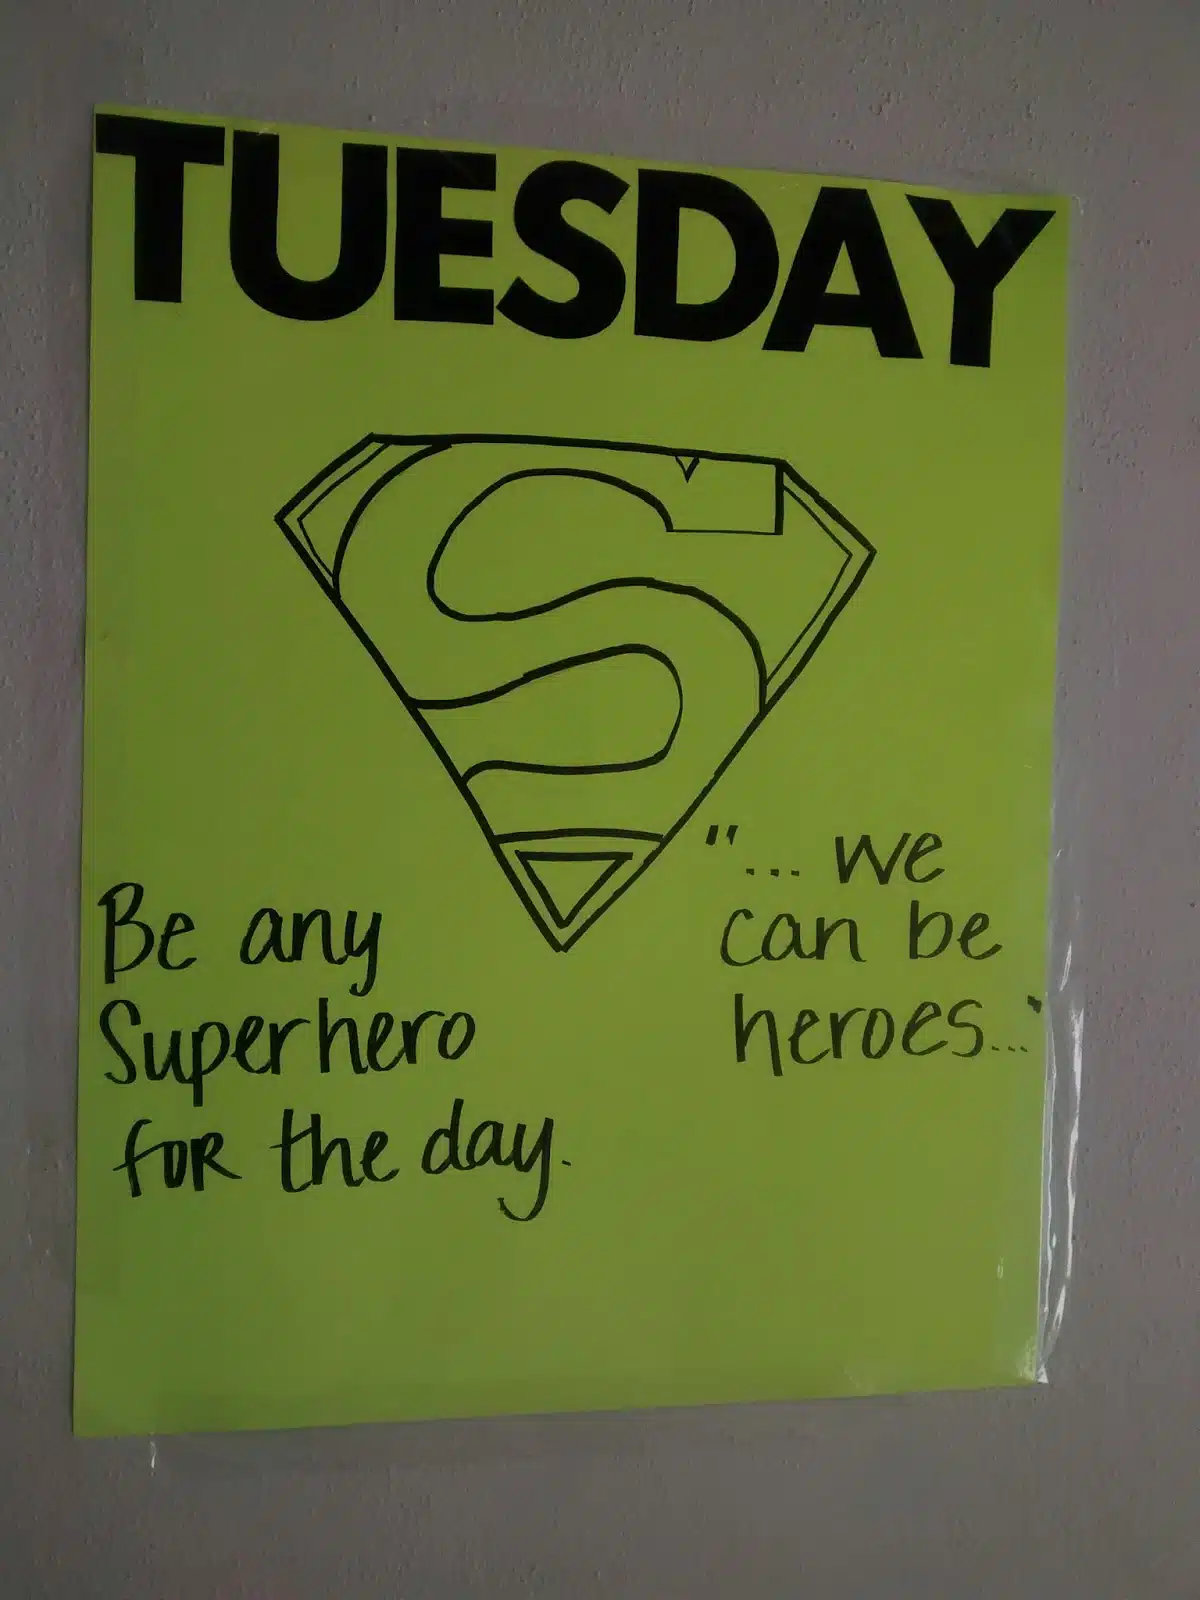 TUESDAY
S
Be any
Superhero
for the day.
"... we
can be
heroes..."